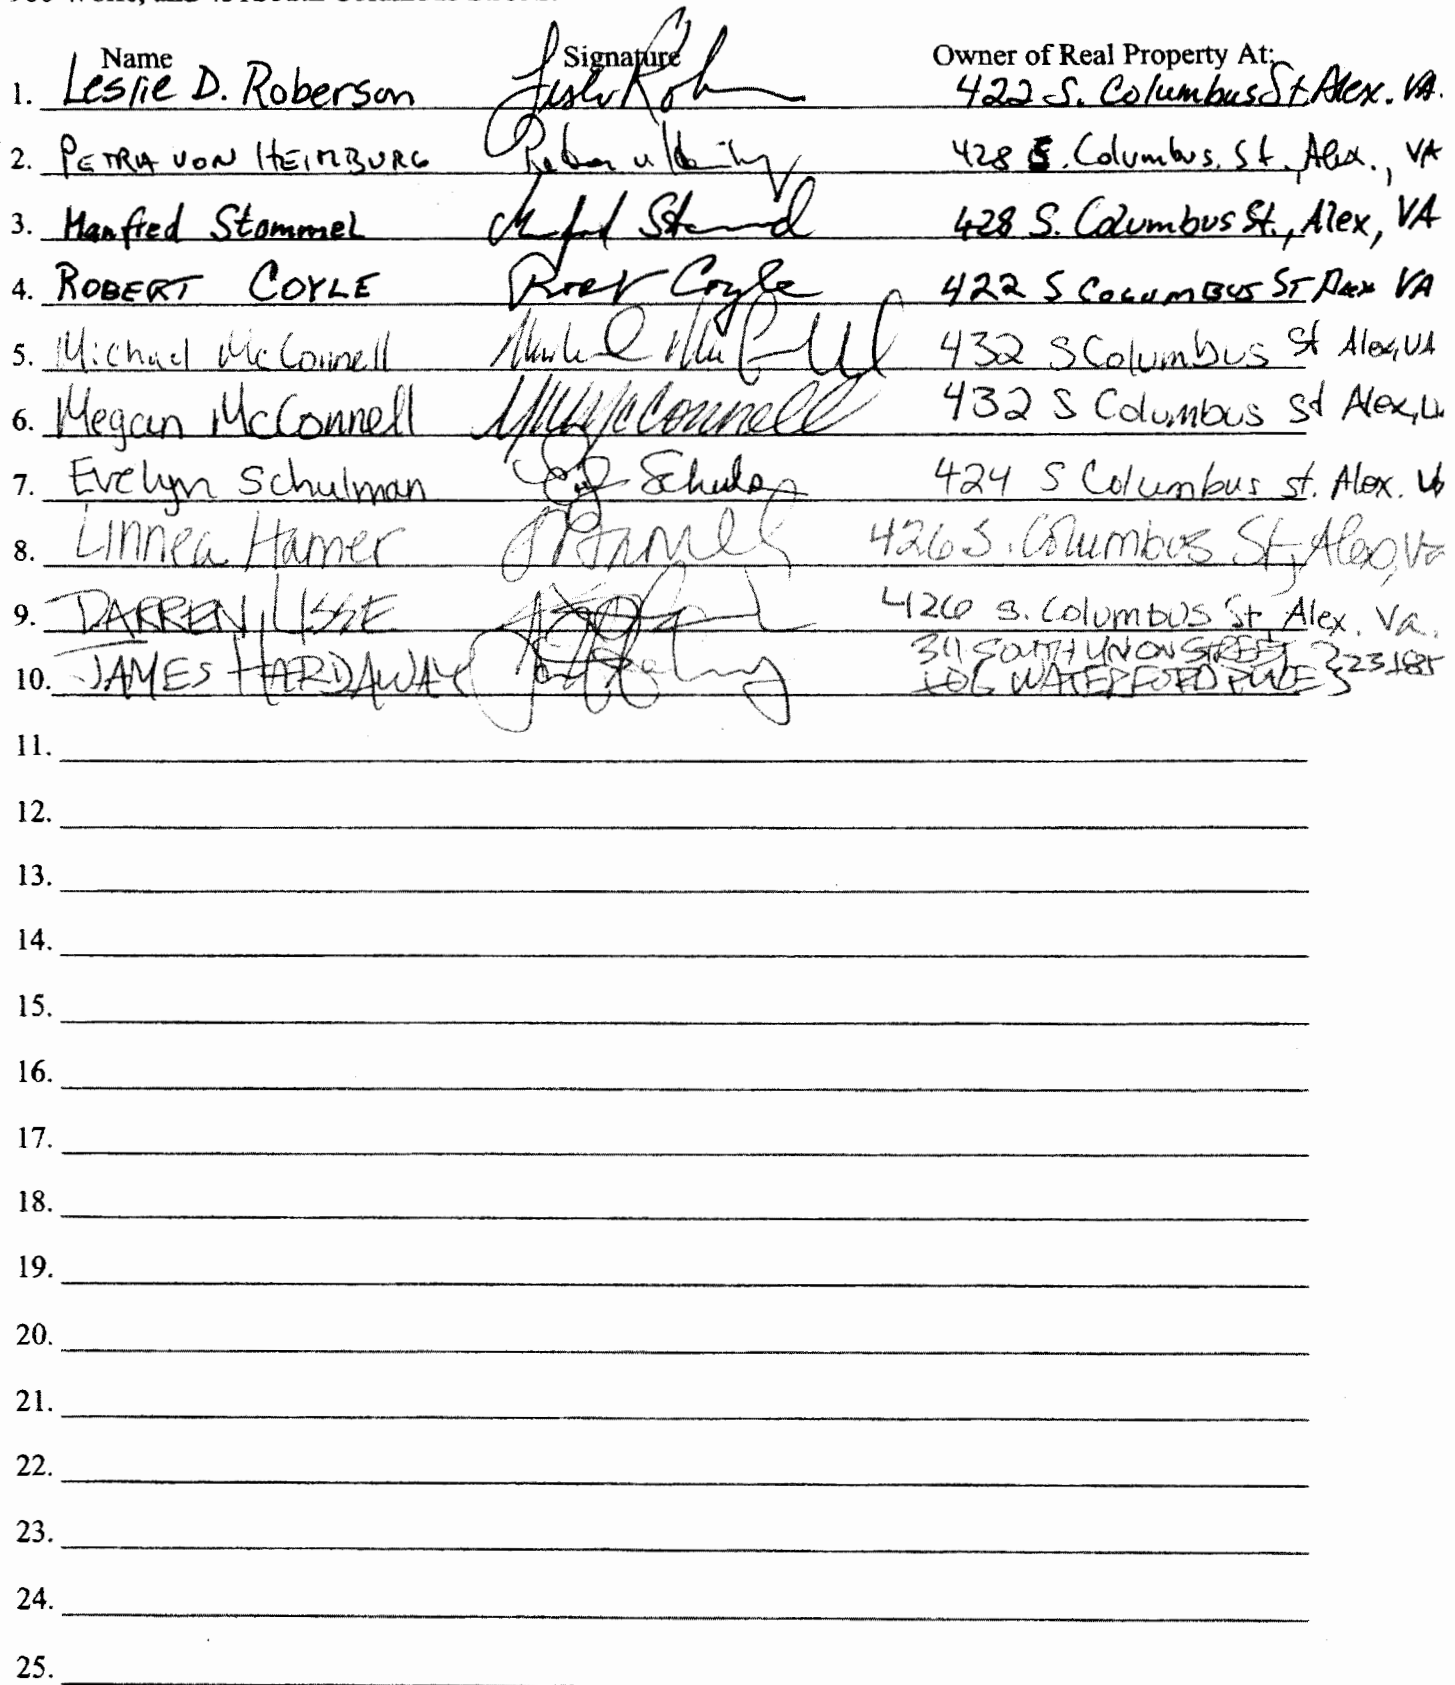 Name Signature Owner of Real Property At:
1. Leslie D. Roberson 422 S. Columbus St Alex. VA.
2. PETRA VON HEIMBURG 428 S. Columbus. St., Alex., VA
3. Manfred Stommel 428 S. Columbus St., Alex, VA
4. ROBERT COYLE Coyle 422 S COLUMBUS ST Alex VA
5. Michael McConnell 432 S Columbus St Alex, VA
6. Megan McConnell McConnell 432 S Columbus St Alex,
7. Evelyn Schulman 424 S Columbus st. Alex. Va
8. Linnea Hamer 426 S. Columbus St, Alex, Va
9. DARREN 426 S. Columbus St Alex. Va.
10. JAMES HARDAWAY 311 SOUTH UNION STREET 23185
106 WATERFORD
11.
12.
13.
14.
15.
16.
17.
18.
19.
20.
21.
22.
23.
24.
25.